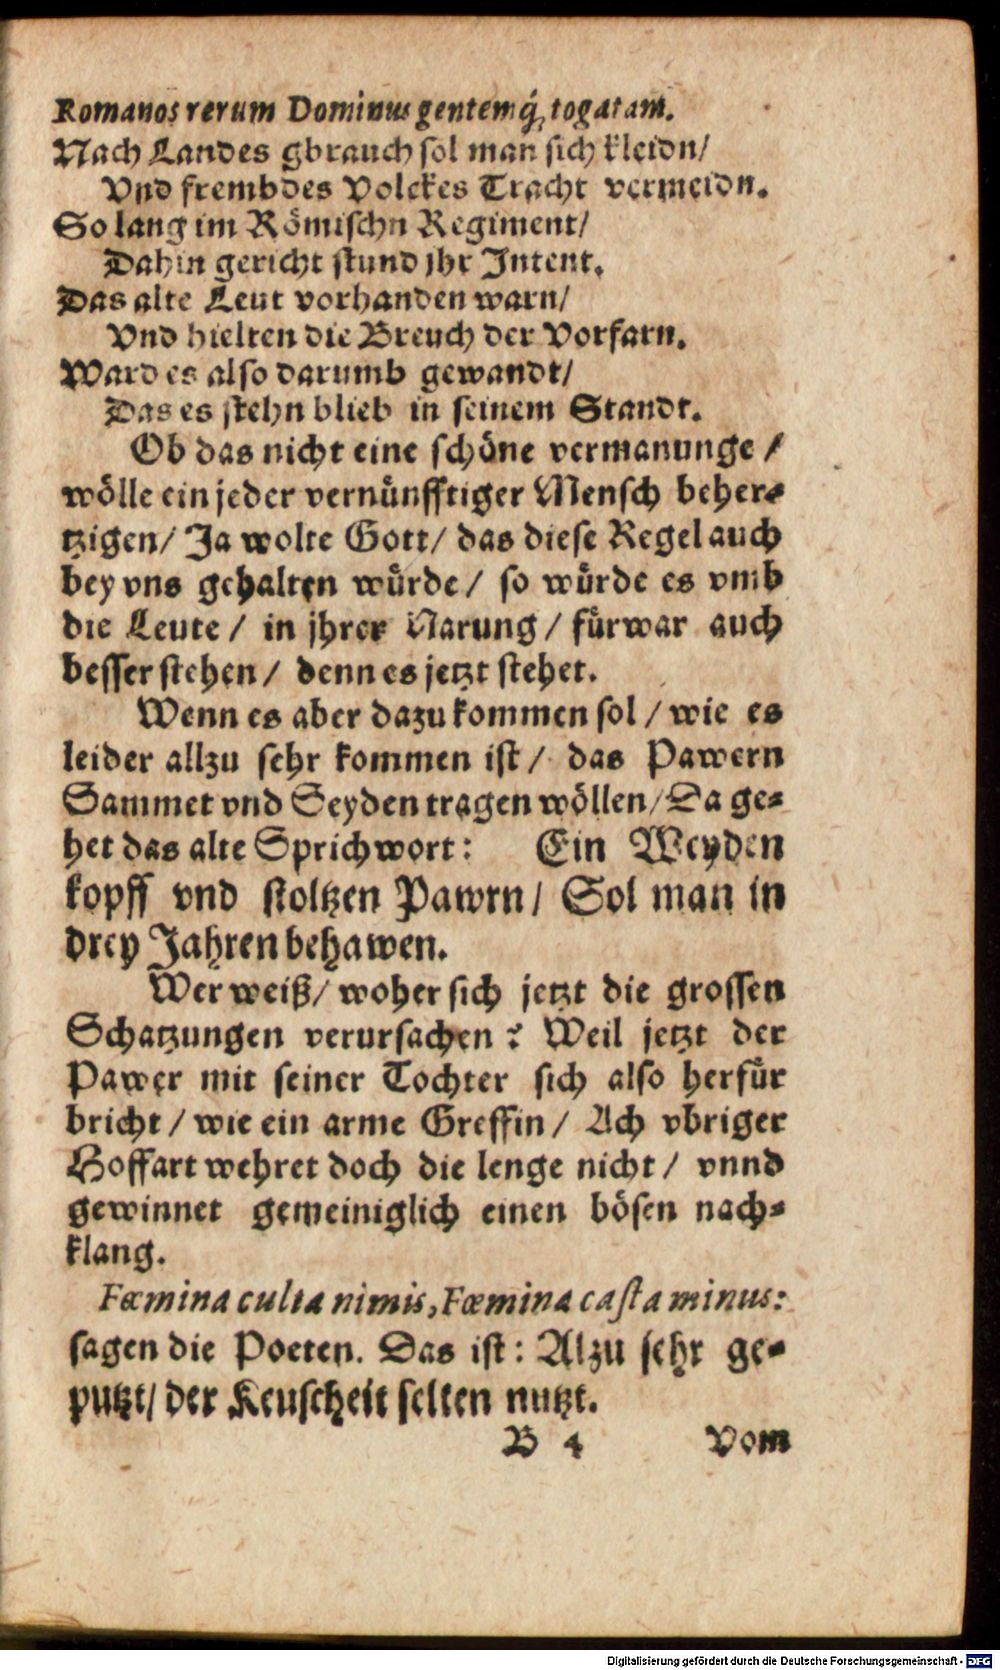 Romanos rerum Dominus gentemq́, togatam.
Nach Landes gbrauch sol man sich kleidn/
Vnd frembdes Volckes Tracht vermeidn.
So lang im Römischn Regiment/
Dahin gericht stund jhr Intent.
Das alte Leut vorhanden warn/
Vnd hielten die Breuch der Vorfarn.
Ward es also darumb gewandt/
Das es stehn blieb in seinem Standt.
Ob das nicht eine schöne vermanunge /
wölle ein jeder vernünfftiger Mensch beher-
tzigen/ Ja wolte Gott/ das diese Regel auch
bey vns gehalten würde / so würde es vmb
die Leute / in jhrer Narung / fürwar auch
besser stehen / denn es jetzt stehet.
Wenn es aber dazu kommen sol / wie es
leider allzu sehr kommen ist / das Pawern
Sammet vnd Seyden tragen wöllen/ Da ge-
het das alte Sprichwort: Ein Weyden
kopff vnd stoltzen Pawrn / Sol man in
drey Jahren behawen.
Wer weiß/ woher sich jetzt die grossen
Schatzungen verursachen? Weil jetzt der
Pawer mit seiner Tochter sich also herfür
bricht / wie ein arme Greffin / Ach vbriger
Hoffart wehret doch die lenge nicht / vnnd
gewinnet gemeiniglich einen bösen nach-
klang.
Fœmina culta nimis, Fœmina casta minus:
sagen die Poeten. Das ist: Alzu sehr ge-
putzt/ der Keuscheit selten nutzt.
B 4 Vom
Digitalisierung gefördert durch die Deutsche Forschungsgemeinschaft - DFG